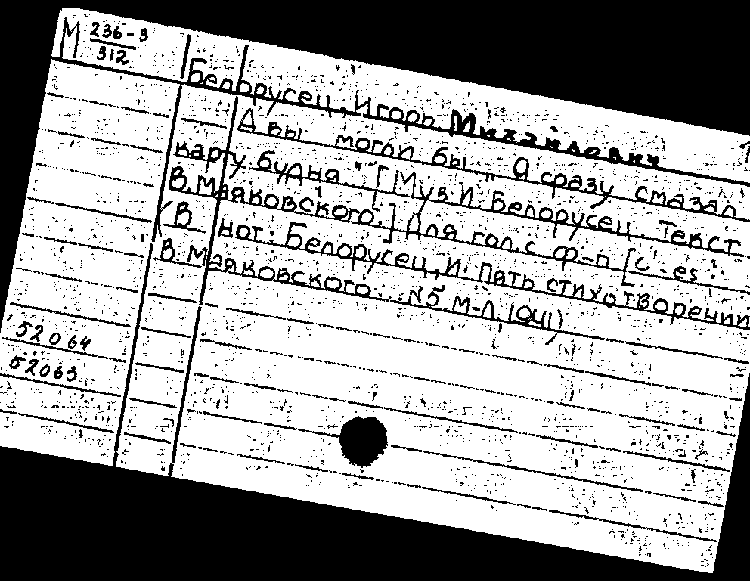 М 236-3
312
Белорусец, Игорь Михайлович
А вы могли бы „Я сразу смазал
карту будня..." [Муз. И. Белорусец. Текст
В. Маяковского.] Для гол. с ф-п [c. es.
(В нот: Белорусец, И. Пять стихотворении
В. Маяковского. N5 М-Л, 1941)
52064
52063